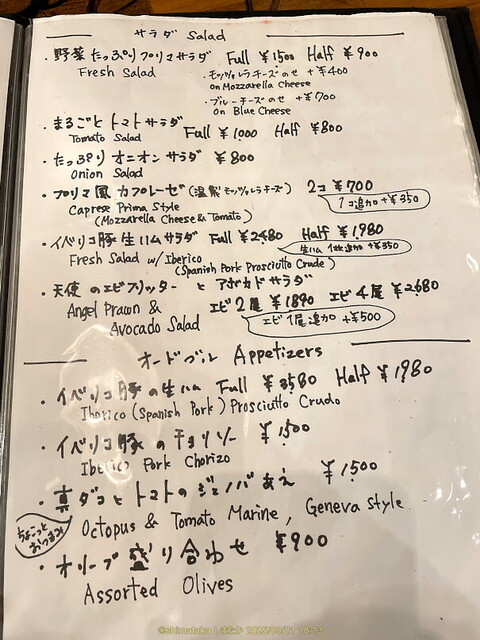 サラダ Salad
・野菜たっぷりプリマサラダ Full ¥1500 Half ¥900
Fresh Salad
・モッツァレラチーズのせ +¥400
on Mozzarella Cheese
・ブルーチーズのせ +¥700
on Blue Cheese
・まるごとトマトサラダ Full ¥1000 Half ¥800
Tomato Salad
・たっぷりオニオンサラダ ¥800
Onion Salad
・プリマ風カプレーゼ(温製モッツァレラチーズ) 2コ ¥700
Caprese Prima Style
1コ追加 +¥350
(Mozzarella Cheese & Tomato)
・イベリコ豚生ハムサラダ Full ¥2480 Half ¥1980
Fresh Salad w/ Iberico
生ハム 1枚追加 +¥350
(Spanish Pork Prosciutto Crude)
・天使のエビフリッターとアボカドサラダ
Angel Prawn &
エビ2尾 ¥1890 エビ4尾 ¥2680
Avocado Salad
エビ1尾追加 +¥500
オードブル Appetizers
・イベリコ豚の生ハム Full ¥3580 Half ¥1980
Iberico (Spanish Pork) Prosciutto Crudo
・イベリコ豚のチョリソー ¥1500
Iberico Pork Chorizo
・真ダコとトマトのジェノバあえ ¥1500
Octopus & Tomato Marine, Geneva Style
ちょこっと
おつまみ
・オリーブ盛り合わせ ¥900
Assorted Olives